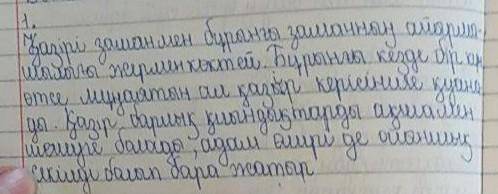 1.
Қазіргі заманмен бұрынғы заманның айырма-
шылығы жермен көктей. Бұрынғы кезде бір ән
өтсе мұңаятын ал қазір керісінше қуана-
ды. Қазір барлық қиындықтарды ақшамен
шешуге болады, адам өмірі де
секілді болып бара жатыр